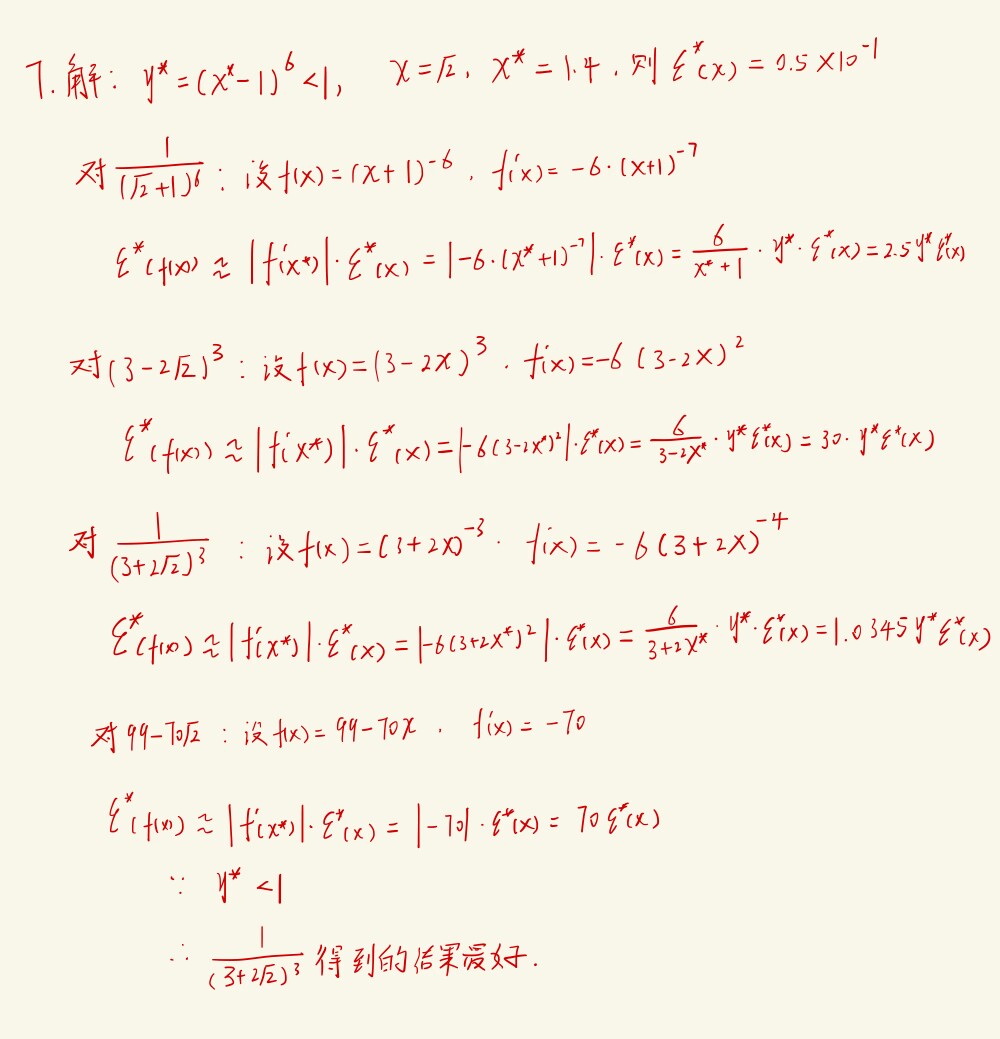 7. 解： y* = (x* - 1)^6 < 1, x = √2, x* = 1.4, 则 ε*(x) = 0.5 × 10^-1
对 1/(√2+1)^6 : 设 f(x) = (x+1)^-6, f'(x) = -6·(x+1)^-7
ε*(f(x)) ≈ |f'(x*)|·ε*(x) = |-6·(x*+1)^-7|·ε*(x) = 6/(x*+1) · y*·ε*(x) = 2.5y*ε*(x)
对 (3-2√2)^3 : 设 f(x) = (3-2x)^3, f'(x) = -6(3-2x)^2
ε*(f(x)) ≈ |f'(x*)|·ε*(x) = |-6(3-2x*)^2|·ε*(x) = 6/(3-2x*) · y*ε*(x) = 30·y*ε*(x)
对 1/(3+2√2)^3 : 设 f(x) = (3+2x)^-3, f'(x) = -6(3+2x)^-4
ε*(f(x)) ≈ |f'(x*)|·ε*(x) = |-6(3+2x*)^2|·ε*(x) = 6/(3+2x*) · y*·ε*(x) = 1.0345y*ε*(x)
对 99-70√2 : 设 f(x) = 99-70x, f'(x) = -70
ε*(f(x)) ≈ |f'(x*)|·ε*(x) = |-70|·ε*(x) = 70ε*(x)
∵ y* < 1
∴ 1/(3+2√2)^3 得到的结果最好.